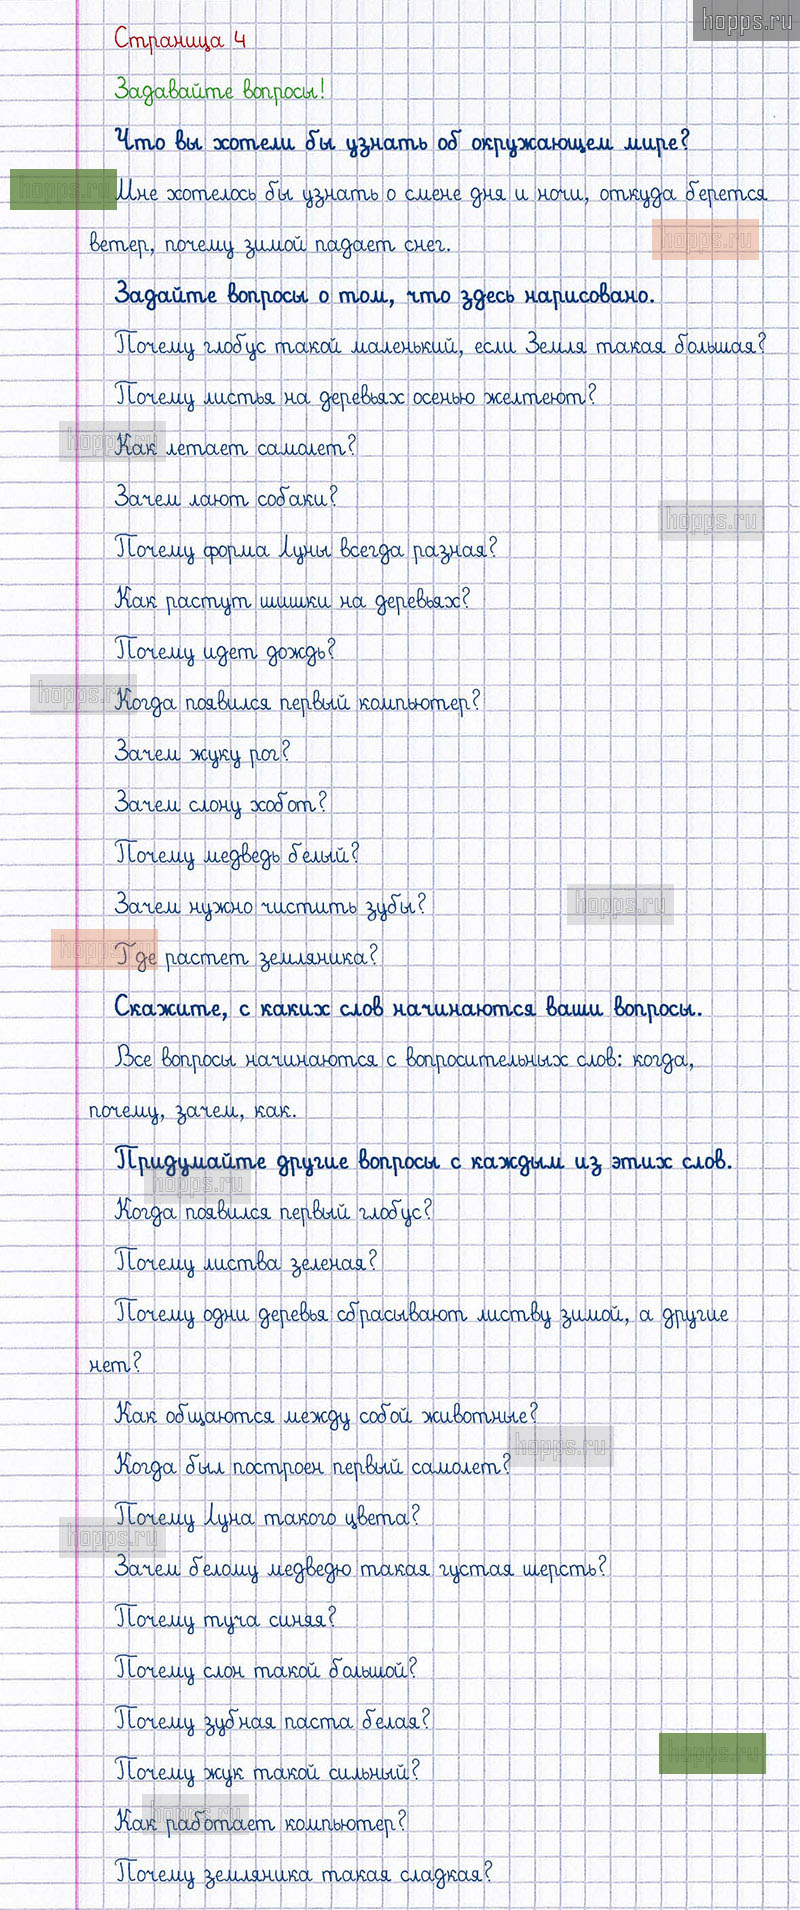 hopps.ru
Страница 4
Задавайте вопросы!
Что вы хотели бы узнать об окружающем мире?
hopps.ru
Мне хотелось бы узнать о смене дня и ночи, откуда берется
hopps.ru
ветер, почему зимой падает снег.
Задайте вопросы о том, что здесь нарисовано.
Почему глобус такой маленький, если Земля такая большая?
Почему листья на деревьях осенью желтеют?
hopps.ru
Как летает самолет?
Зачем лают собаки?
hopps.ru
Почему форма Луны всегда разная?
Как растут шишки на деревьях?
Почему идет дождь?
hopps.ru
Когда появился первый компьютер?
Зачем жуку рог?
Зачем слону хобот?
Почему медведь белый?
Зачем нужно чистить зубы?
hopps.ru
hopps.ru
Где растет земляника?
Скажите, с каких слов начинаются ваши вопросы.
Все вопросы начинаются с вопросительных слов: когда,
почему, зачем, как.
Придумайте другие вопросы с каждым из этих слов.
hopps.ru
Когда появился первый глобус?
Почему листва зеленая?
Почему одни деревья сбрасывают листву зимой, а другие
нет?
Как общаются между собой животные?
hopps.ru
Когда был построен первый самолет?
Почему Луна такого цвета?
hopps.ru
Зачем белому медведю такая густая шерсть?
Почему туча синяя?
Почему слон такой большой?
Почему зубная паста белая?
hopps.ru
Почему жук такой сильный?
hopps.ru
Как работает компьютер?
Почему земляника такая сладкая?